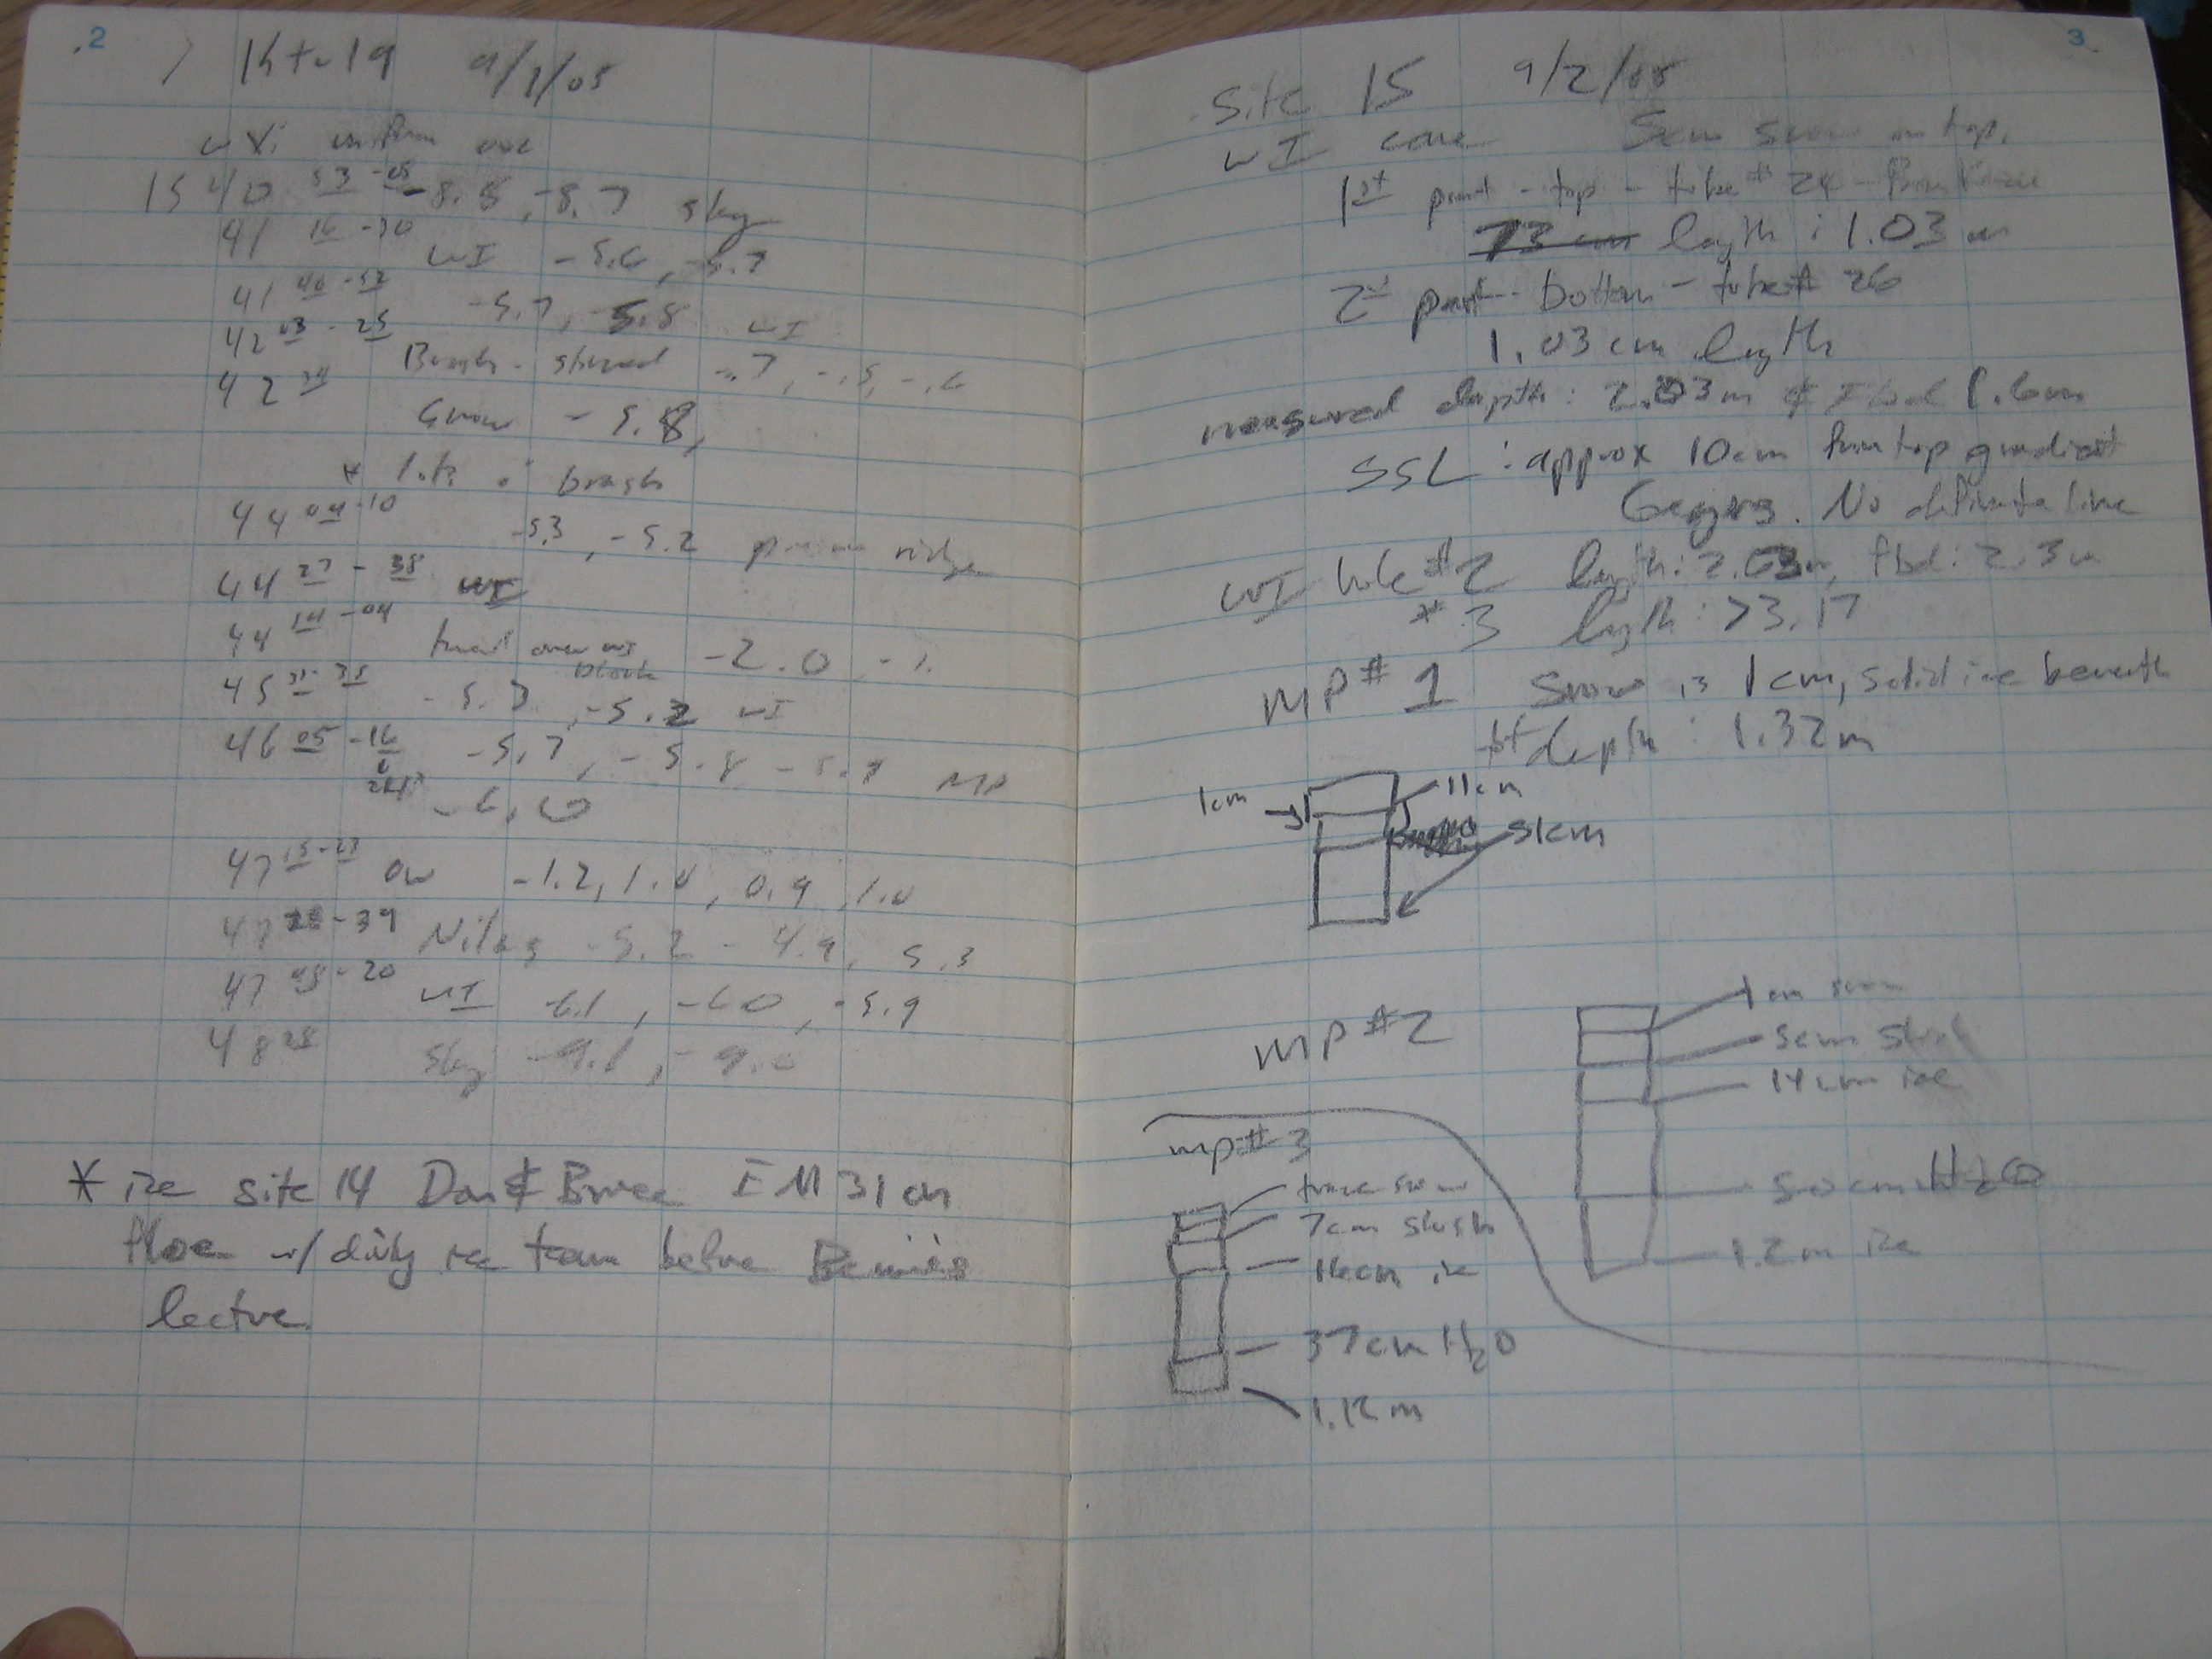 2
Kt-19 9/1/05
15 40 53 -08 -8.5, -8.7 sky
41 16 -30
WI -5.6, -5.7
41 40 -52
-5.7, -5.8 WI
42 03 - 25
Brash - -.7, -.5, -.6
42
Snow -5.8,
* lots o' brash
44 04-10
-5.3, -5.2 ridge
44 27 - 38 WI
44 14 -04
over WI block -2.0
45 -5.3, -5.2 WI
46 05 -16 -5.7, -5.8 -5.9 MP
-6.0
47 15-23 OW -1.2, 1.0, 0.9, 1.0
47 -39 Nilas -5.2 - 4.9, 5.3
47 48 - 20 WI -6.1, -6.0, -5.9
48 28 Sky -9.1, -9.0
* ice site 14 Don & Bruce EM31 on
floe w/ dirty ice team before
lecture.
3
Site 15 9/2/05
WI core 5cm snow on top.
1st part - top - tube # 24 -
73 cm length : 1.03 m
2nd part - bottom - tube # 26
1.03 cm length
measured depth: 2.03m & Fbd 1.6m
SSL : approx 10cm from top gradient
Begins. No definite line
WI hole #2 length: 2.03m, fbd: 2.3m
#3 length: >3.17
MP# 1 Snow is 1cm, solid ice beneath
depth : 1.32m
1cm
11cm
51cm
MP #2
1 cm snow
5cm slush
14cm ice
50cm H2O
1.2m ice
mp# 3
trace snow
7cm slush
16cm ice
37cm H2O
1.12m